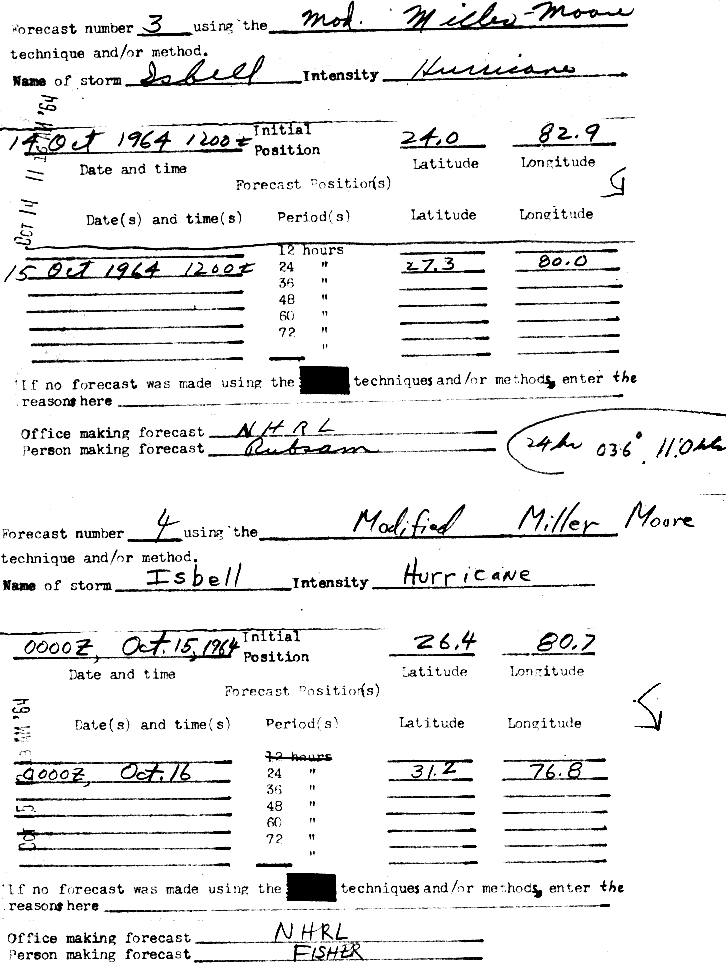 Forecast number 3 using the Mod. Miller-Moore
technique and/or method.
Name of storm Isbell Intensity Hurricane
14 Oct 1964 1200Z Initial Position 24.0 82.9
Date and time Latitude Longitude
Forecast Position(s)
Date(s) and time(s) Period(s) Latitude Longitude
12 hours
15 Oct 1964 1200Z 24 " 27.3 80.0
36 "
48 "
60 "
72 "
"
If no forecast was made using the techniques and/or methods, enter the
reasons here
Office making forecast NHRL
Person making forecast Rubsam
24 hr 036° 11.0 kts
OCT 14 11 AM '64
Forecast number 4 using the Modified Miller Moore
technique and/or method.
Name of storm Isbell Intensity Hurricane
0000Z, Oct. 15, 1964 Initial Position 26.4 80.7
Date and time Latitude Longitude
Forecast Position(s)
Date(s) and time(s) Period(s) Latitude Longitude
12 hours
0000Z, Oct. 16 24 " 31.2 76.8
36 "
48 "
60 "
72 "
"
If no forecast was made using the techniques and/or methods, enter the
reasons here
Office making forecast NHRL
Person making forecast FISHER
OCT 15 AM '64